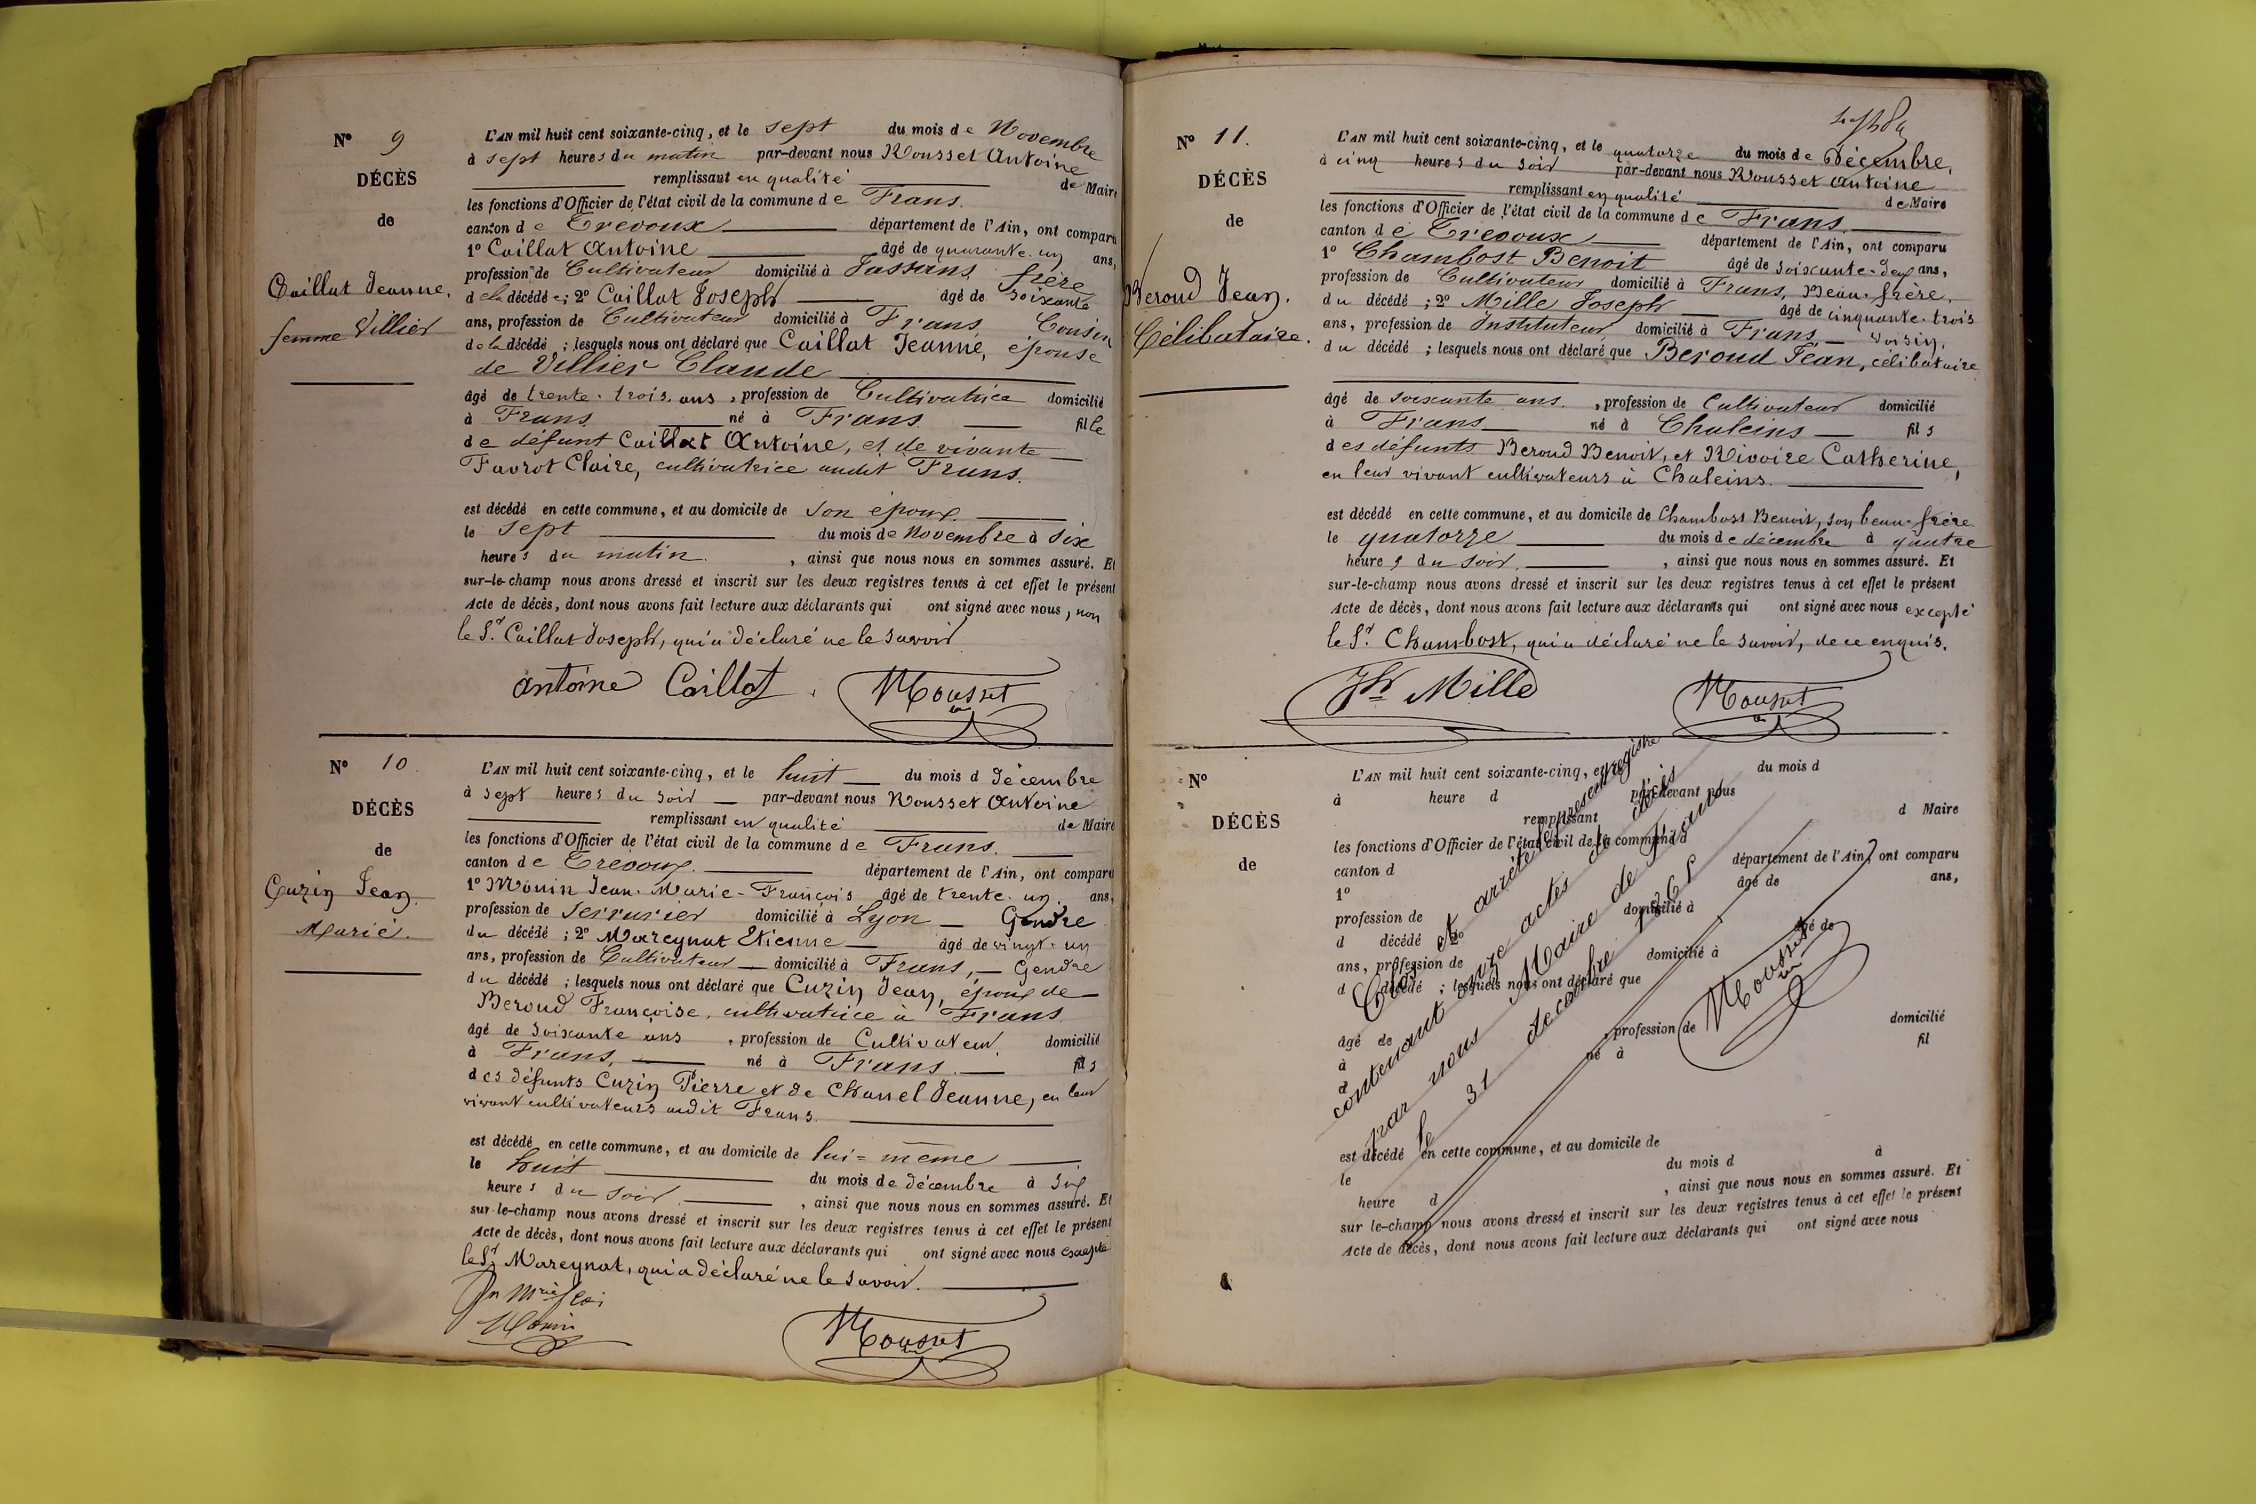 N° 9
DÉCÈS
de
Caillat Jeanne,
femme Villier
L'AN mil huit cent soixante-cinq, et le sept du mois de Novembre
à sept heures du matin par-devant nous Rousset Antoine
remplissant en qualité de Maire
les fonctions d'Officier de l'état civil de la commune de Frans.
canton de Trevoux département de l'Ain, ont comparu
1° Caillat Antoine âgé de quarante-un ans,
profession de Cultivateur domicilié à Jassans, frère
de la décédée; 2° Caillat Joseph âgé de soixante
ans, profession de Cultivateur domicilié à Frans Cousin
de la décédé ; lesquels nous ont déclaré que Caillat Jeanne, épouse
de Villier Claude
âgé de trente-trois ans, profession de Cultivatrice domicilié
à Frans né à Frans fille
de défunt Caillat Antoine, et de vivante
Favrot Claire, cultivatrice audit Frans.
est décédé en cette commune, et au domicile de son époux
le sept du mois de Novembre à six
heures du matin, ainsi que nous nous en sommes assuré. Et
sur-le-champ nous avons dressé et inscrit sur les deux registres tenus à cet effet le présent
Acte de décès, dont nous avons fait lecture aux déclarants qui ont signé avec nous, non
le Sr. Caillat Joseph, qui a déclaré ne le savoir
Antoine Caillat. Rousset
N° 10
DÉCÈS
de
Cuzin Jean.
Marié.
L'AN mil huit cent soixante-cinq, et le huit du mois d Décembre
à sept heures du soir par-devant nous Rousset Antoine
remplissant en qualité de Maire
les fonctions d'Officier de l'état civil de la commune de Frans.
canton de Trevoux. département de l'Ain, ont comparu
1° Mouin Jean-Marie-François âgé de trente-un ans,
profession de serrurier domicilié à Lyon Gendre
du décédé ; 2° Mareynat Etienne âgé de vingt-un
ans, profession de Cultivateur domicilié à Frans, Gendre
du décédé ; lesquels nous ont déclaré que Cuzin Jean, époux de
Beroud Françoise, cultivatrice à Frans
âgé de soixante ans, profession de Cultivateur, domicilié
à Frans, né à Frans. fils
des défunts Cuzin Pierre et de Chanel Jeanne, en leur
vivant cultivateurs audit Frans.
est décédé en cette commune, et au domicile de lui-même
le huit du mois de décembre à six
heures du soir, ainsi que nous nous en sommes assuré. Et
sur-le-champ nous avons dressé et inscrit sur les deux registres tenus à cet effet le présent
Acte de décès, dont nous avons fait lecture aux déclarants qui ont signé avec nous excepté
le Sr. Mareynat, qui a déclaré ne le savoir.
Mouin
Rousset
N° 11.
DÉCÈS
de
Beroud Jean.
Célibataire.
L'AN mil huit cent soixante-cinq, et le quatorze du mois de Décembre,
à cinq heures du soir par-devant nous Rousset Antoine
remplissant en qualité de Maire
les fonctions d'Officier de l'état civil de la commune de Frans.
canton de Trevoux département de l'Ain, ont comparu
1° Chambost Benoit âgé de soixante-dex ans,
profession de Cultivateur domicilié à Frans, Beau-frère.
du décédé ; 2° Mille Joseph âgé de cinquante-trois
ans, profession de Instituteur domicilié à Frans, voisin,
du décédé ; lesquels nous ont déclaré que Beroud Jean, célibataire
âgé de soixante ans, profession de Cultivateur domicilié
à Frans né à Chaleins fils
des défunts Beroud Benoit, et Rivoire Catherine,
en leur vivant cultivateurs à Chaleins.
est décédé en cette commune, et au domicile de Chambost Benoit, son beau-frère
le quatorze du mois de décembre à quatre
heures du soir, ainsi que nous nous en sommes assuré. Et
sur-le-champ nous avons dressé et inscrit sur les deux registres tenus à cet effet le présent
Acte de décès, dont nous avons fait lecture aux déclarants qui ont signé avec nous excepté
le Sr. Chambost, qui a déclaré ne le savoir, de ce enquis.
Jh Mille Rousset
N°
DÉCÈS
de
L'AN mil huit cent soixante-cinq, et le du mois d
à heure d par-devant nous
remplissant d Maire
les fonctions d'Officier de l'état civil de la commune d
canton d département de l'Ain, ont comparu
1° âgé de ans,
profession de domicilié à
d décédé 2° âgé de
ans, profession de domicilié à
d décédé ; lesquels nous ont déclaré que
âgé de , profession de domicilié
à né à fil
d
est décédé en cette commune, et au domicile de
le du mois d à
heure d , ainsi que nous nous en sommes assuré. Et
sur le-champ nous avons dressé et inscrit sur les deux registres tenus à cet effet le présent
Acte de décès, dont nous avons fait lecture aux déclarants qui ont signé avec nous
Clos et arrêté le présent registre
contenant onze actes de décès
par nous Maire de Frans
le 31 décembre 1865
Rousset